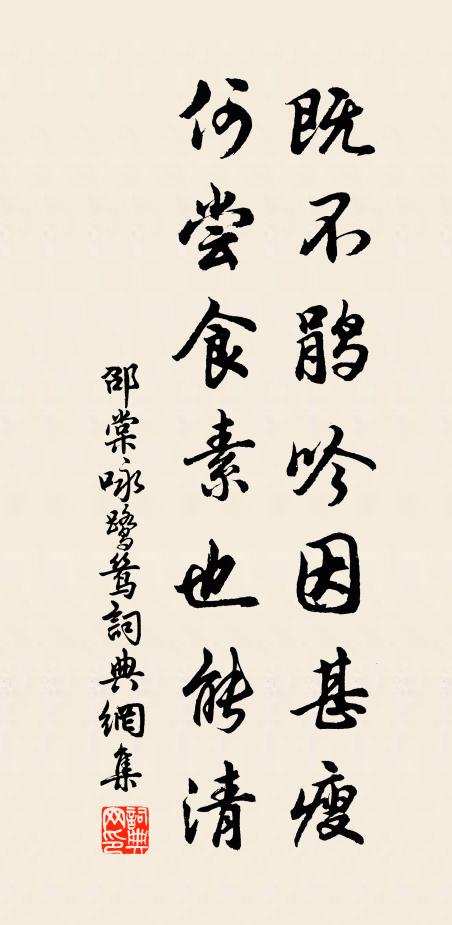 既不鹃吟因甚瘦
何尝食素也能清
邵棠咏鹭鸶詞典網集
詞典网印